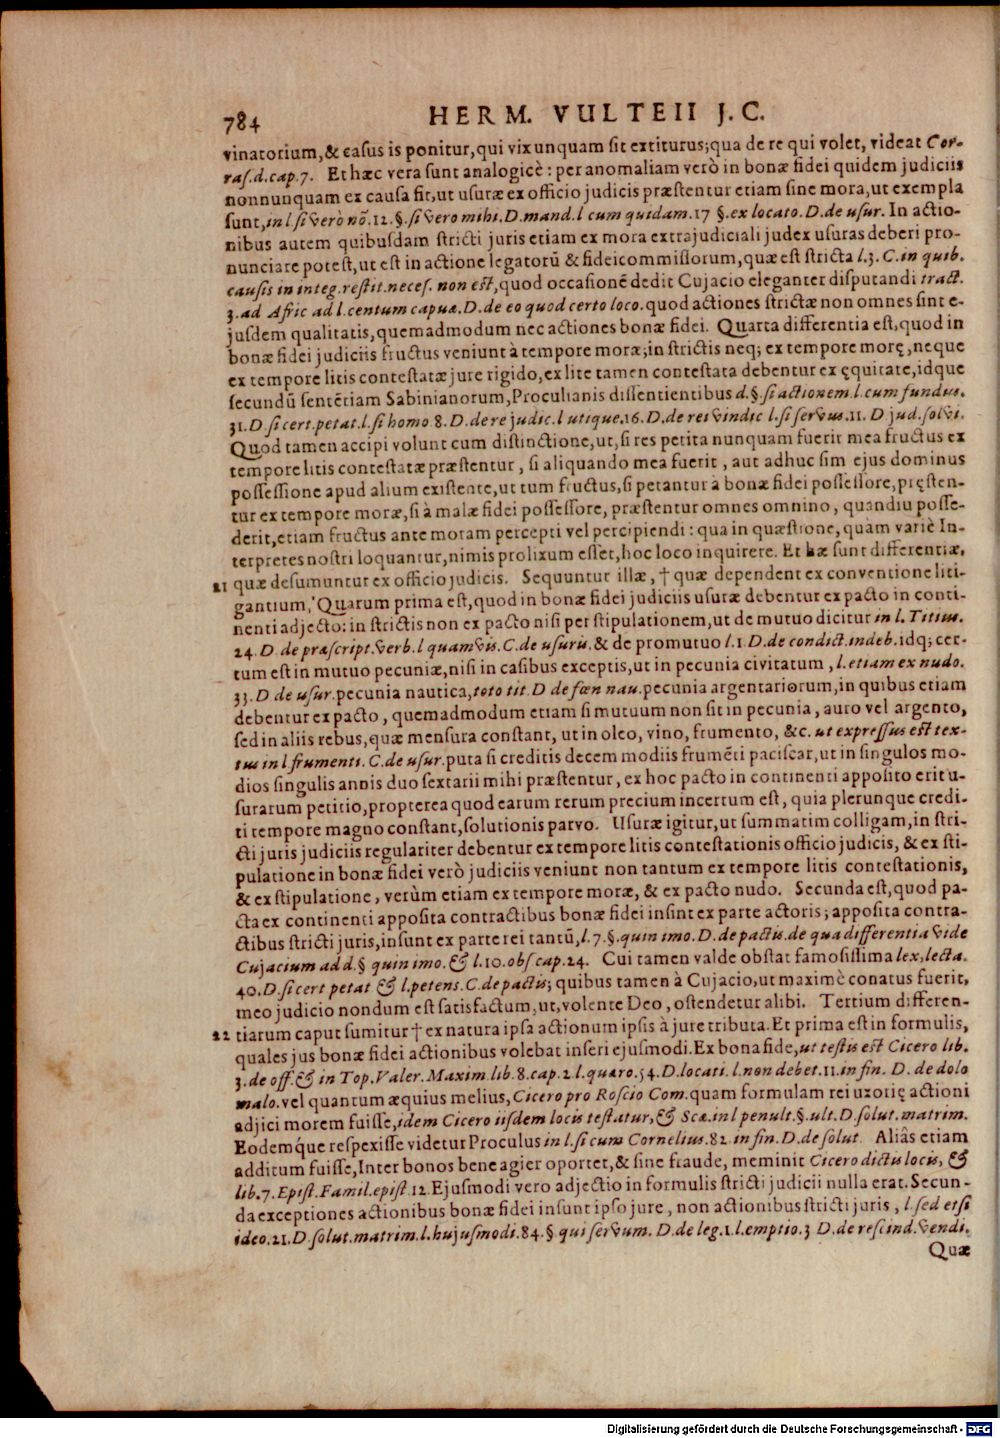 784 HERM. VULTEII J. C.
vinatorium,& casus is ponitur,qui vix unquam sit extiturus;qua de re qui volet, videat Cor-
ras.d.cap.7. Et hæc vera sunt analogicè : per anomaliam verò in bonæ fidei quidem judiciis
nonnunquam ex causa fit,ut usuræ ex officio judicis præstentur etiam sine mora,ut exempla
sunt,in l.si verò nō.12.§.si vero mihi.D.mand.l cum quidam.17 §.ex locato.D.de usur. In actio-
nibus autem quibusdam stricti juris etiam ex mora extrajudiciali judex usuras deberi pro-
nunciare potest,ut est in actione legatorū & fideicommissorum,quæ est stricta l.3. C.in quib.
causis in integ.restit.neces. non est,quod occasionē dedit Cujacio eleganter disputandi tract.
3.ad Afric ad l.centum capuæ.D.de eo quod certo loco.quod actiones strictæ non omnes sint e-
jusdem qualitatis,quemadmodum nec actiones bonæ fidei. Quarta differentia est,quod in
bonæ fidei judiciis fructus veniunt à tempore moræ;in strictis neq; ex tempore morę,neque
ex tempore litis contestatæ jure rigido,ex lite tamen contestata debentur ex ęquitate,idque
secundū sentētiam Sabinianorum,Proculianis dissentientibus d.§.si actionem.l.cum fundus.
31.D.si cert.petat.l.si homo.8.D.de re judic.l utique.16.D.de rei vindic l.si servus.11. D jud.solvi.
Quod tamen accipi volunt cum distinctione,ut,si res petita nunquam fuerit mea fructus ex
tempore litis contestatæ præstentur, si aliquando mea fuerit, aut adhuc sim ejus dominus
possessione apud alium existente,ut tum fructus,si petantur à bonæ fidei possessore,pręsten-
tur ex tempore moræ,si à malæ fidei possessore, præstentur omnes omnino, quandiu posse-
derit,etiam fructus ante moram percepti vel percipiendi : qua in quæstione,quàm variè In-
terpretes nostri loquantur,nimis prolixum esset,hoc loco inquirere. Et hæ sunt differentiæ,
21 quæ desumuntur ex officio judicis. Sequuntur illæ, † quæ dependent ex conventione liti-
gantium, Quarum prima est,quod in bonæ fidei judiciis usuræ debentur ex pacto in conti-
nenti adjecto: in strictis non ex pacto nisi per stipulationem,ut de mutuo dicitur in l. Titius.
24.D.de præscript.verb.l quamvis.C.de usuris.& de promutuo l.1.D.de condict.indeb.idq; cer-
tum est in mutuo pecuniæ,nisi in casibus exceptis,ut in pecunia civitatum, l.etiam ex nudo.
33.D.de usur.pecunia nautica,toto tit.D de fœn nau.pecunia argentariorum,in quibus etiam
debentur ex pacto, quemadmodum etiam si mutuum non sit in pecunia, auro vel argento,
sed in aliis rebus,quæ mensura constant, ut in oleo, vino, frumento, &c. ut expressus est tex-
tus in l frumenti. C.de usur.puta si creditis decem modiis frumēti paciscar,ut in singulos mo-
dios singulis annis duo sextarii mihi præstentur, ex hoc pacto in continenti apposito erit u-
surarum petitio,propterea quod earum rerum precium incertum est, quia plerunque credi-
ti tempore magno constant,solutionis parvo. Usuræ igitur,ut summatim colligam,in stri-
cti juris judiciis regulariter debentur ex tempore litis contestationis officio judicis, & ex sti-
pulatione in bonæ fidei verò judiciis veniunt non tantum ex tempore litis contestationis,
& ex stipulatione, verùm etiam ex tempore moræ, & ex pacto nudo. Secunda est,quod pa-
cta ex continenti apposita contractibus bonæ fidei insint ex parte actoris; apposita contra-
ctibus stricti juris,insunt ex parte rei tantū,l.7.§.quin imo.D.de pactis.de qua differentia vide
Cujacium ad d.§ quin imo.& l.10.obs cap.24. Cui tamen valde obstat famosissima lex,lecta.
40.D.si cert petat & l.petens.C.de pactis; quibus tamen à Cujacio,ut maximè conatus fuerit,
meo judicio nondum est satisfactum,ut,volente Deo, ostendetur alibi. Tertium differen-
22 tiarum caput sumitur † ex natura ipsa actionum ipsis à jure tributa.Et prima est in formulis,
quales jus bonæ fidei actionibus volebat inseri ejusmodi.Ex bona fide,ut testis est Cicero lib.
3.de off.& in Top.Valer.Maxim.lib.8.cap.2.l.quæro.54.D.locati.l.non debet.11.in fin. D. de dolo
malo.vel quantum æquius melius,Cicero pro Roscio Com.quam formulam rei uxorię actioni
adjici morem fuisse,idem Cicero iisdem locis testatur,& Scæ.in l penult.§.ult.D.solut.matrim.
Eodemque respexisse videtur Proculus in l.si cum Cornelius.82.in fin.D.de solut. Aliâs etiam
additum fuisse,Inter bonos bene agier oportet,& sine fraude, meminit Cicero dictis locis, &
lib.7.Epist.Famil.epist.12.Ejusmodi vero adjectio in formulis stricti judicii nulla erat.Secun-
da exceptiones actionibus bonæ fidei insunt ipso jure, non actionibus stricti juris, l.sed etsi
ideo.21.D.solut.matrim.l.hujusmodi.84.§.qui servum. D.de leg.1.l.emptio.3 D.de rescind.vendi.
Quæ
Digitalisierung gefördert durch die Deutsche Forschungsgemeinschaft - DFG